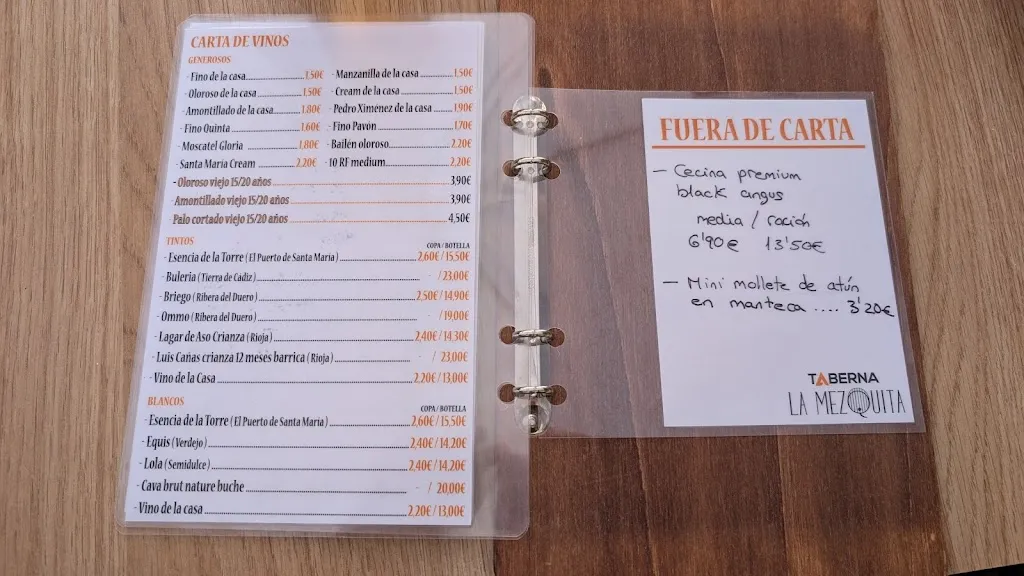 CARTA DE VINOS
GENEROSOS
- Fino de la casa 1,50€
- Oloroso de la casa 1,50€
- Amontillado de la casa 1.80€
- Fino Quinta 1,60€
- Moscatel Gloria 1.80€
- Santa María Cream 2.20€
- Manzanilla de la casa 1.50€
- Cream de la casa 1.50€
- Pedro Ximénez de la casa 1.90€
- Fino Pavón 1.70€
- Bailén oloroso 2.20€
- 10 RF medium 2,20€
- Oloroso viejo 15/20 años 3.90€
Amontillado viejo 15/20 años 3,90€
Palo cortado viejo 15/20 años 4,50€
TINTOS
COPA / BOTELLA
- Esencia de la Torre ( El Puerto de Santa María ) 2,60€ / 15,50€
- Buleria ( Tierra de Cádiz ) - / 23,00€
- Briego ( Ribera del Duero ) 2.50€ / 14.90€
- Ommo ( Ribera del Duero ) - / 19,00€
- Lagar de Aso Crianza ( Rioja ) 2,40€ / 14.30€
- Luis Cañas crianza 12 meses barrica ( Rioja ) - / 23,00€
- Vino de la Casa 2,20€ / 13,00€
BLANCOS
COPA / BOTELLA
- Esencia de la Torre ( El Puerto de Santa María ) 2,60€ / 15,50€
- Equis ( Verdejo ) 2,40€ / 14,20€
- Lola ( Semidulce ) 2.40€ / 14,20€
- Cava brut nature buche - / 20,00€
- Vino de la casa 2.20€ / 13,00€
FUERA DE CARTA
- Cecina premium
black angus
media / ración
6'90€ 13'50€
- Mini mollete de atún
en manteca .... 3'20€
TABERNA
LA MEZQUITA